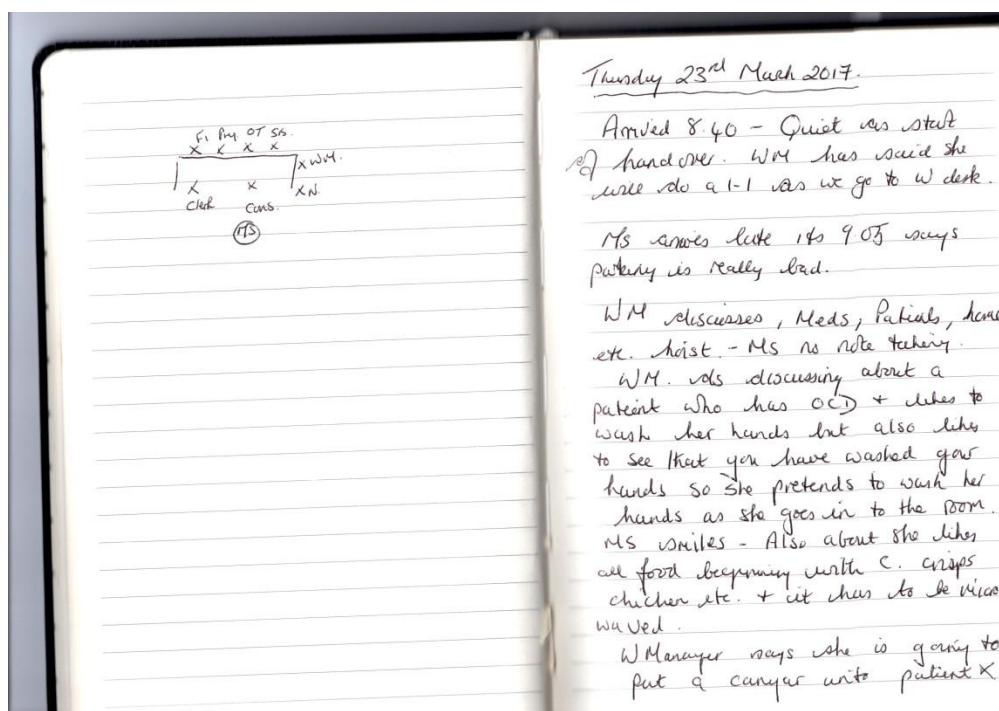 F1 Phy OT Sis.
x x x x
x WM.
x x x N.
Clerk Cons.
MS
Thursday 23rd March 2017.
Arrived 8.40 - Quiet as start
of handover. WM has said she
will do a 1-1 as we go to W desk.
MS arrives late its 9 05 says
parking is really bad.
WM discusses, Meds, Patients, home
etc. hoist. - MS no note taking.
WM. is discussing about a
patient who has OCD + likes to
wash her hands but also likes
to see that you have washed your
hands so she pretends to wash her
hands as she goes in to the room.
MS smiles - Also about she likes
all food beginning with C. crisps
chicken etc. + it has to be micro
waved.
W Manager says she is going to
put a into patient X